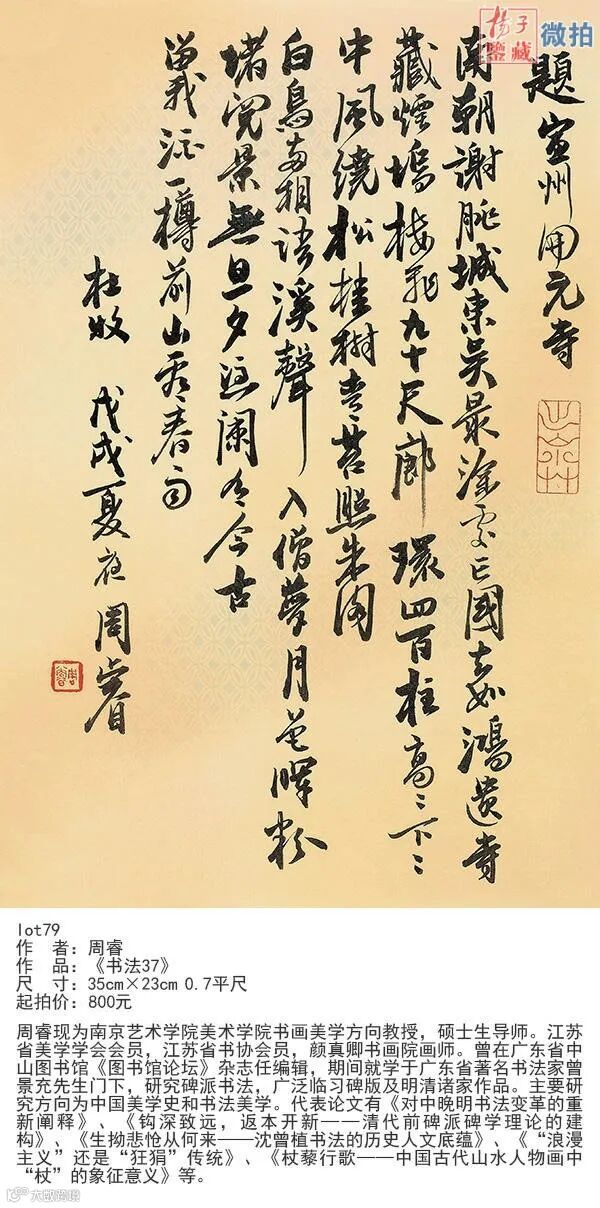 揚子
鑒藏
微拍
題宣州開元寺
南朝謝朓城東吳最深處亡國去如鴻遺寺
藏煙塢樓飛九十尺廊環四百柱高〻下〻
中風繞松桂樹青苔照朱閣
白鳥兩相語溪聲入僧夢月色暉粉
堵閱景無旦夕憑闌有今古
留我酒一樽前山看春雨
杜牧 戊戌夏夜周睿
lot79
作 者：周睿
作 品：《书法37》
尺 寸：35cm×23cm 0.7平尺
起拍价：800元
周睿现为南京艺术学院美术学院书画美学方向教授，硕士生导师。江苏
省美学学会会员，江苏省书协会员，颜真卿书画院画师。曾在广东省中
山图书馆《图书馆论坛》杂志任编辑，期间就学于广东省著名书法家曾
景充先生门下，研究碑派书法，广泛临习碑版及明清诸家作品。主要研
究方向为中国美学史和书法美学。代表论文有《对中晚明书法变革的重
新阐释》、《钩深致远，返本开新——清代前碑派碑学理论的建
构》、《生拗悲怆从何来——沈曾植书法的历史人文底蕴》、《“浪漫
主义”还是“狂狷”传统》、《杖藜行歌——中国古代山水人物画中
“杖”的象征意义》等。